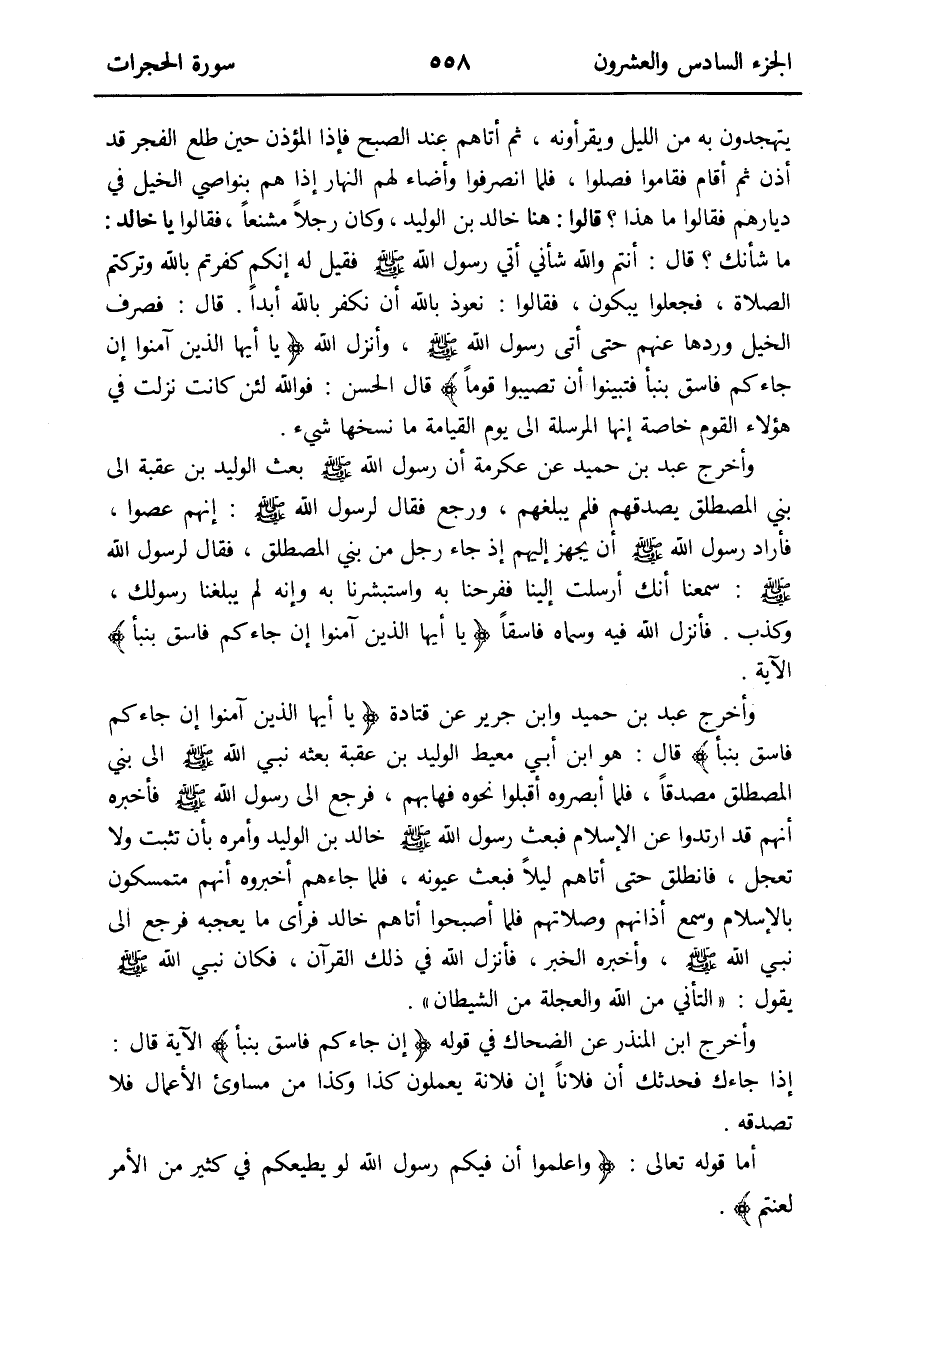 الجزء السادس والعشرون ٥٥٨ سورة الحجرات
يتهجدون به من الليل ويقرأونه ، ثم أتاهم عند الصبح فإذا المؤذن حين طلع الفجر قد
أذن ثم أقام فقاموا فصلوا ، فلما انصرفوا وأضاء لهم النهار إذا هم بنواصي الخيل في
ديارهم فقالوا ما هذا ؟ قالوا : هنا خالد بن الوليد ، وكان رجلاً مشنعاً ، فقالوا يا خالد :
ما شأنك ؟ قال : أنتم والله شأني أتي رسول الله ﷺ فقيل له إنكم كفرتم بالله وتركتم
الصلاة ، فجعلوا يبكون ، فقالوا : نعوذ بالله أن نكفر بالله أبداً . قال : فصرف
الخيل وردها عنهم حتى أتى رسول الله ﷺ ، وأنزل الله ﴿ يا أيها الذين آمنوا إن
جاءكم فاسق بنبأ فتبينوا أن تصيبوا قوماً ﴾ قال الحسن : فوالله لئن كانت نزلت في
هؤلاء القوم خاصة إنها المرسلة الى يوم القيامة ما نسخها شيء .
وأخرج عبد بن حميد عن عكرمة أن رسول الله ﷺ بعث الوليد بن عقبة الى
بني المصطلق يصدقهم فلم يبلغهم ، ورجع فقال لرسول الله ﷺ : إنهم عصوا ،
فأراد رسول الله ﷺ أن يجهز إليهم إذ جاء رجل من بني المصطلق ، فقال لرسول الله
ﷺ : سمعنا أنك أرسلت إلينا ففرحنا به واستبشرنا به وإنه لم يبلغنا رسولك ،
وكذب . فأنزل الله فيه وسماه فاسقاً ﴿ يا أيها الذين آمنوا إن جاءكم فاسق بنبأ ﴾
الآية .
وأخرج عبد بن حميد وابن جرير عن قتادة ﴿ يا أيها الذين آمنوا إن جاءكم
فاسق بنبأ ﴾ قال : هو ابن أبي معيط الوليد بن عقبة بعثه نبي الله ﷺ الى بني
المصطلق مصدقاً ، فلما أبصروه أقبلوا نحوه فهابهم ، فرجع الى رسول الله ﷺ فأخبره
أنهم قد ارتدوا عن الإسلام فبعث رسول الله ﷺ خالد بن الوليد وأمره بأن تثبت ولا
تعجل ، فانطلق حتى أتاهم ليلاً فبعث عيونه ، فلما جاءهم أخبروه أنهم متمسكون
بالإسلام وسمع أذانهم وصلاتهم فلما أصبحوا أتاهم خالد فرأى ما يعجبه فرجع الى
نبي الله ﷺ ، وأخبره الخبر ، فأنزل الله في ذلك القرآن ، فكان نبي الله ﷺ
يقول : «التأني من الله والعجلة من الشيطان» .
وأخرج ابن المنذر عن الضحاك في قوله ﴿ إن جاءكم فاسق بنبأ ﴾ الآية قال :
إذا جاءك فحدثك أن فلاناً إن فلانة يعملون كذا وكذا من مساوئ الأعمال فلا
تصدقه .
أما قوله تعالى : ﴿ واعلموا أن فيكم رسول الله لو يطيعكم في كثير من الأمر
لعنتم ﴾ .